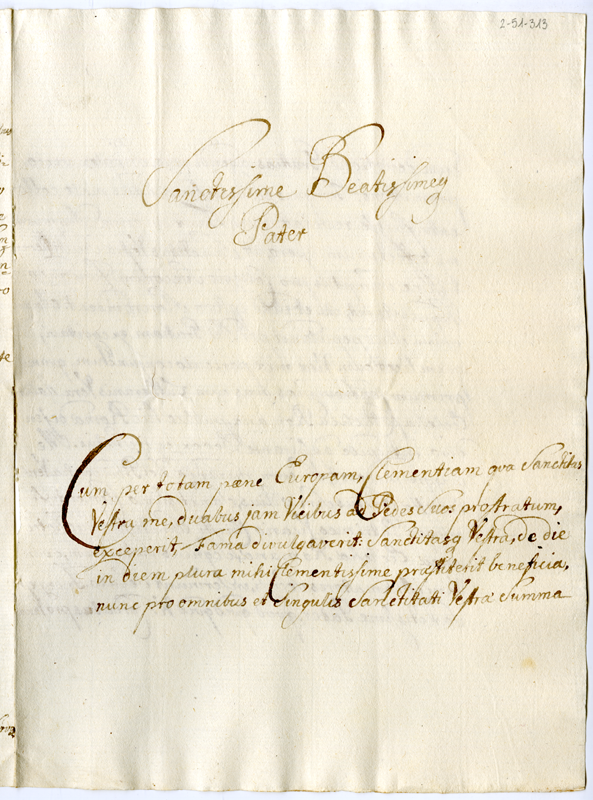 2-51-313
Sanctissime Beatissimeq
Pater
Cum per totam pæne Europam, Clementiam qva Sanctitas
Vestra me, duabus jam Vicibus ad Pedes Suos prostratum,
exceperit, Fama divulgaverit: Sanctitasq Vestra, de die
in diem plura mihi Clementissime præstiterit beneficia,
nunc pro omnibus et Singulis Sanctitati Vestræ Summa